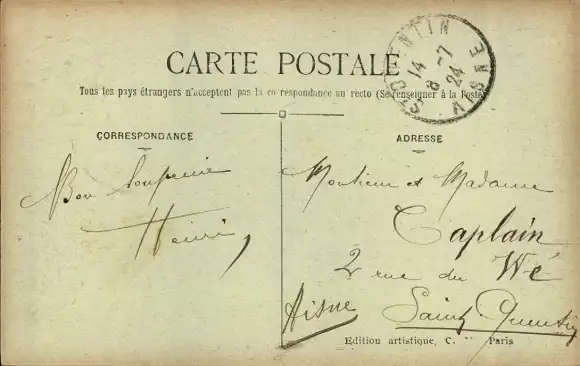 CARTE POSTALE
Tous les pays étrangers n'acceptent pas la correspondance au recto (Se renseigner à la Poste)
ST QUENTIN
14
8 -7
24
AISNE
CORRESPONDANCE
Bon Souvenir
Henri,
ADRESSE
Monsieur et Madame
Caplain
2 rue du Wé
Saint Quentin
Aisne
Edition artistique, C. Paris